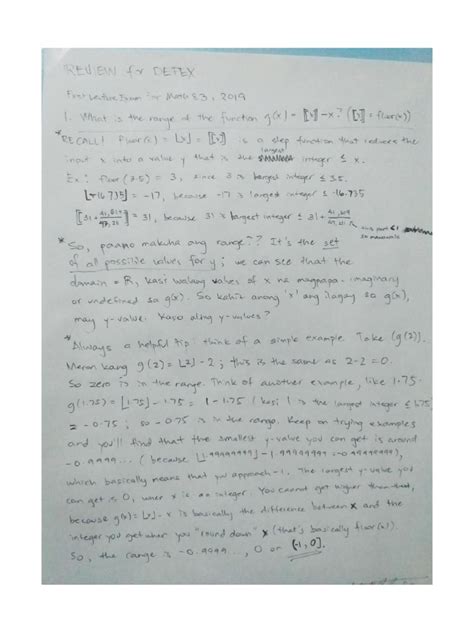 REVIEW for DEPEX
First Lecture Exam for Math 53, 2019
1. What is the range of the function g(x) = [[x]] - x? ([[x]] = floor(x))
* RECALL! Floor(x) = ⌊x⌋ = [[x]] is a step function that reduces the
input x into a value y that is the largest integer ≤ x.
Ex: floor(3.5) = 3, since 3 is largest integer ≤ 3.5.
⌊-16.735⌋ = -17, because -17 is largest integer ≤ -16.735
= 31, because 31 is largest integer ≤ 31 +
this part < 1
* So, paano makuha ang range?? It's the set
of all possible values for y; we can see that the
domain = R, kasi walang values of x na magpapa-imaginary
or undefined sa g(x). So kahit anong 'x' ang ilagay sa g(x),
may y-value. Kaso aling y-values?
* Always a helpful tip: think of a simple example. Take (g(2)).
Meron kang g(2) = ⌊2⌋ - 2; this is the same as 2-2 = 0.
So zero is in the range. Think of another example, like 1.75.
g(1.75) = ⌊1.75⌋ - 1.75 = 1 - 1.75 (kasi 1 is the largest integer ≤ 1.75)
= -0.75; so -0.75 is in the range. Keep on trying examples
and you'll find that the smallest y-value you can get is around
-0.9999... (because ⌊1.99999999⌋ - 1.99999999 = -0.9999),
which basically means that you approach -1. The largest y-value you
can get is 0, when x is an integer. You cannot get higher than that,
because g(x) = ⌊x⌋ - x is basically the difference between x and the
integer you get when you "round down" x (that's basically floor(x)).
So, the range is -0.9999..., 0 or (-1, 0].